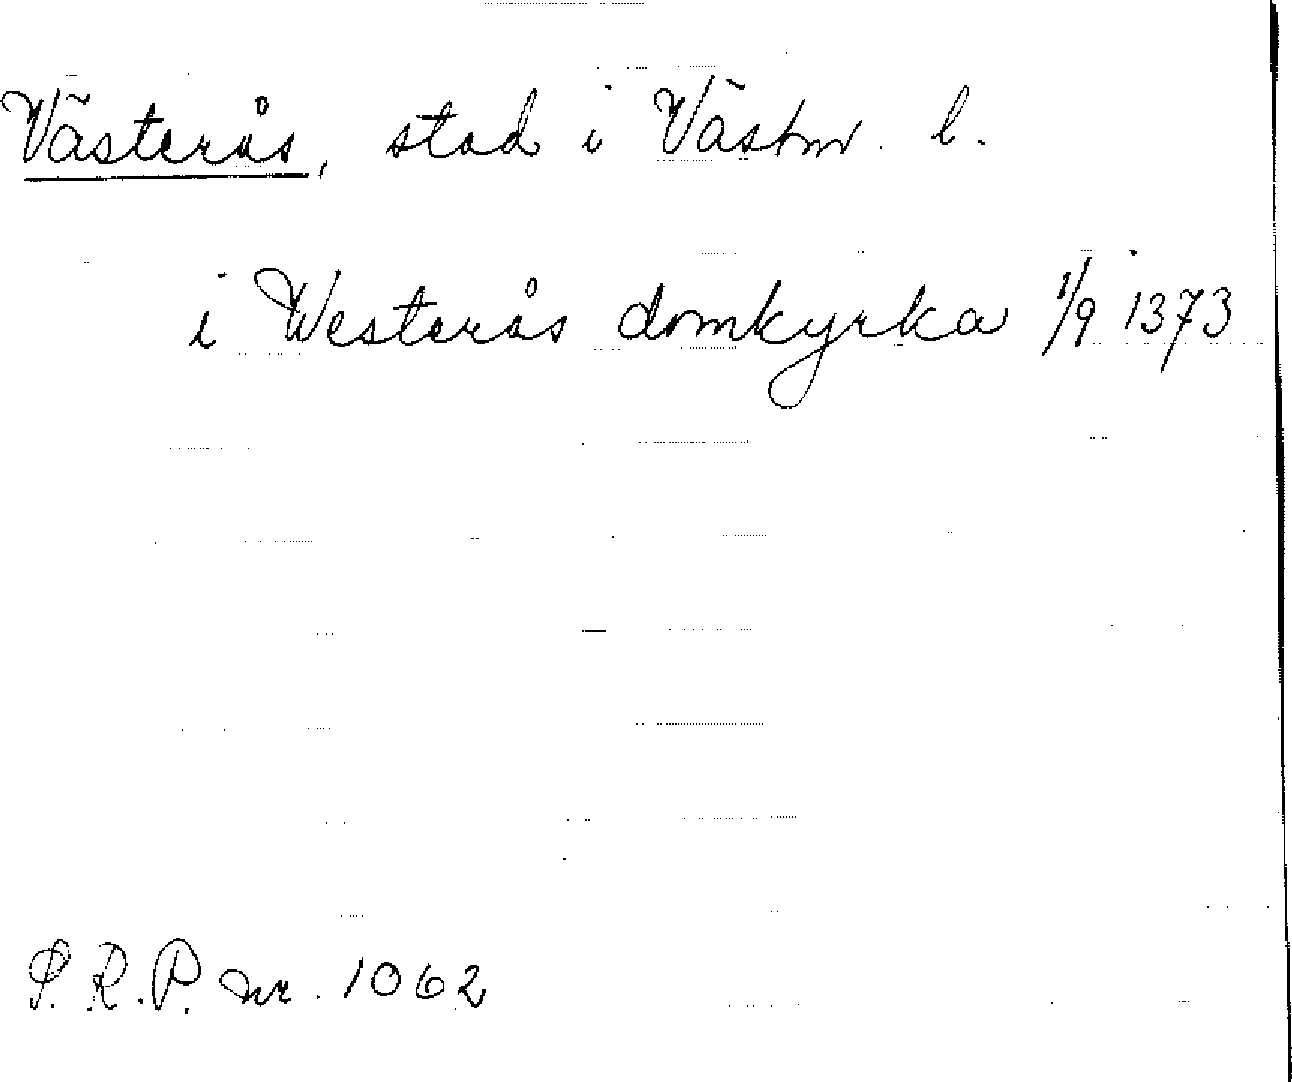 Västerås, stad i Västm. l.
i Westerås domkyrka 1/9 1373
S.R.P. nr. 1062